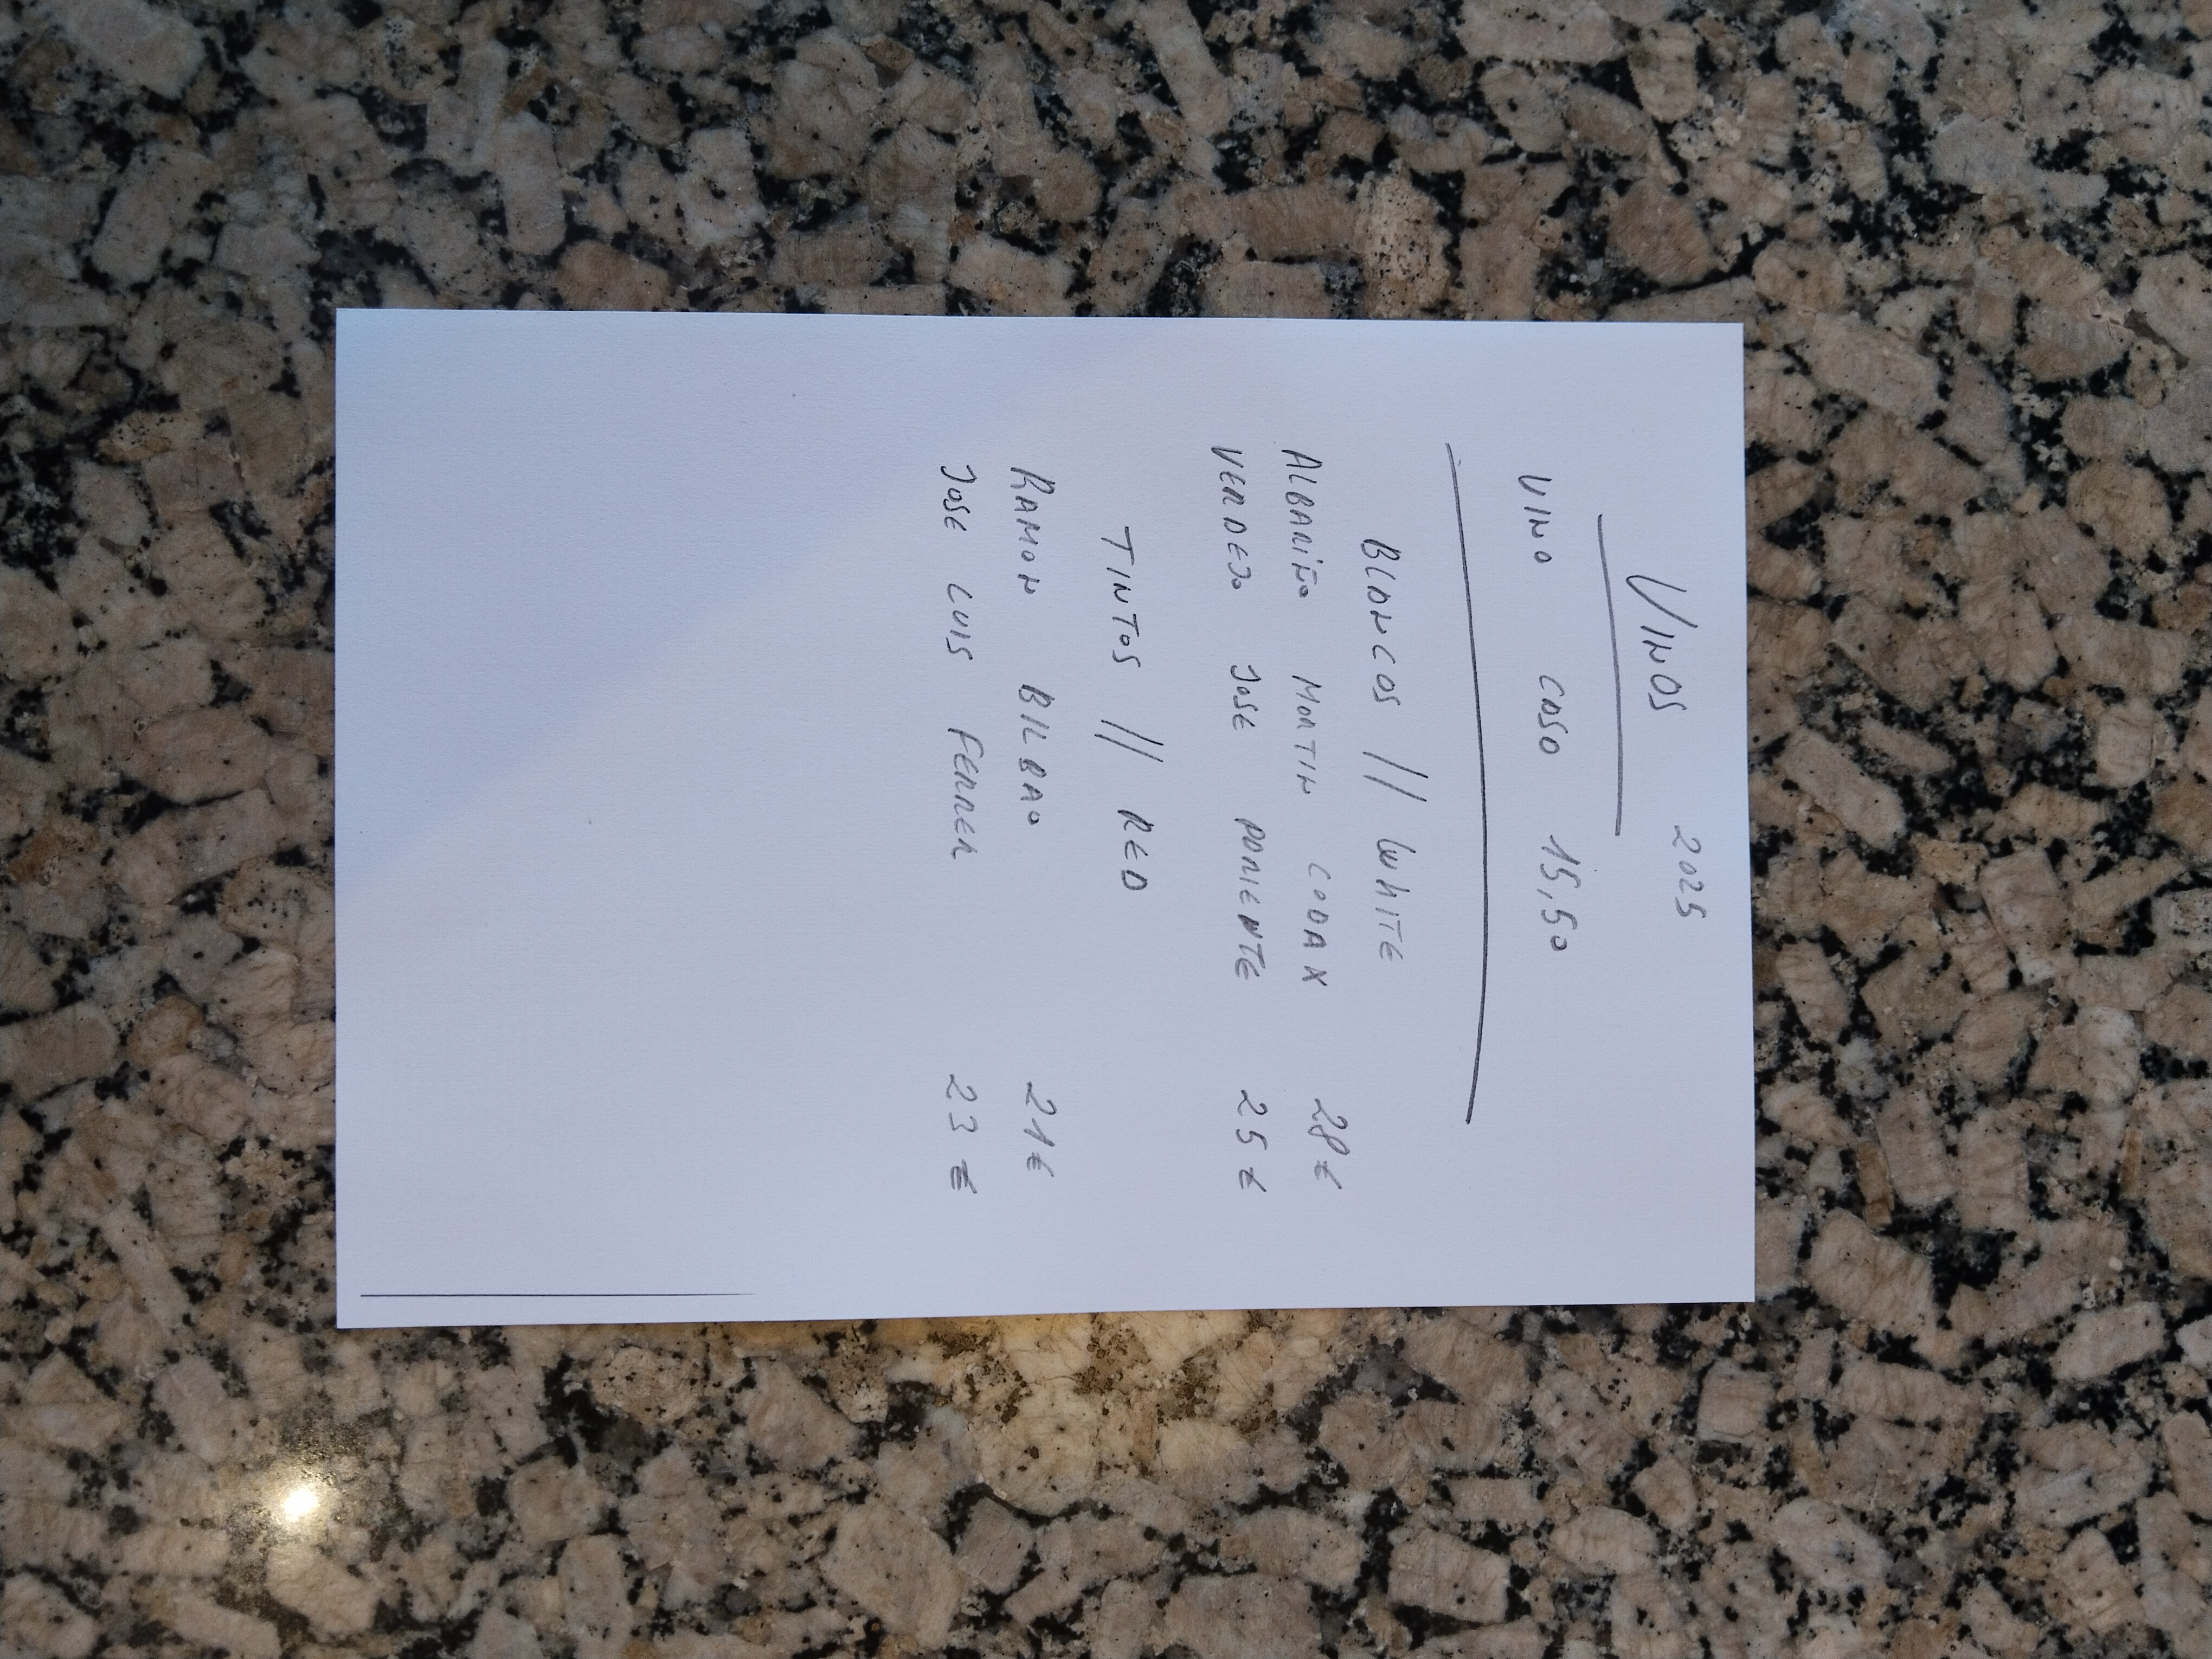 VINOS 2025
VINO CASA 15,50
BLANCOS // WHITE
ALBARIÑO MARTIN CODAX 28€
VERDEJO JOSE PARIENTE 25€
TINTOS // RED
RAMON BILBAO 21€
JOSE LUIS FERRER 23€